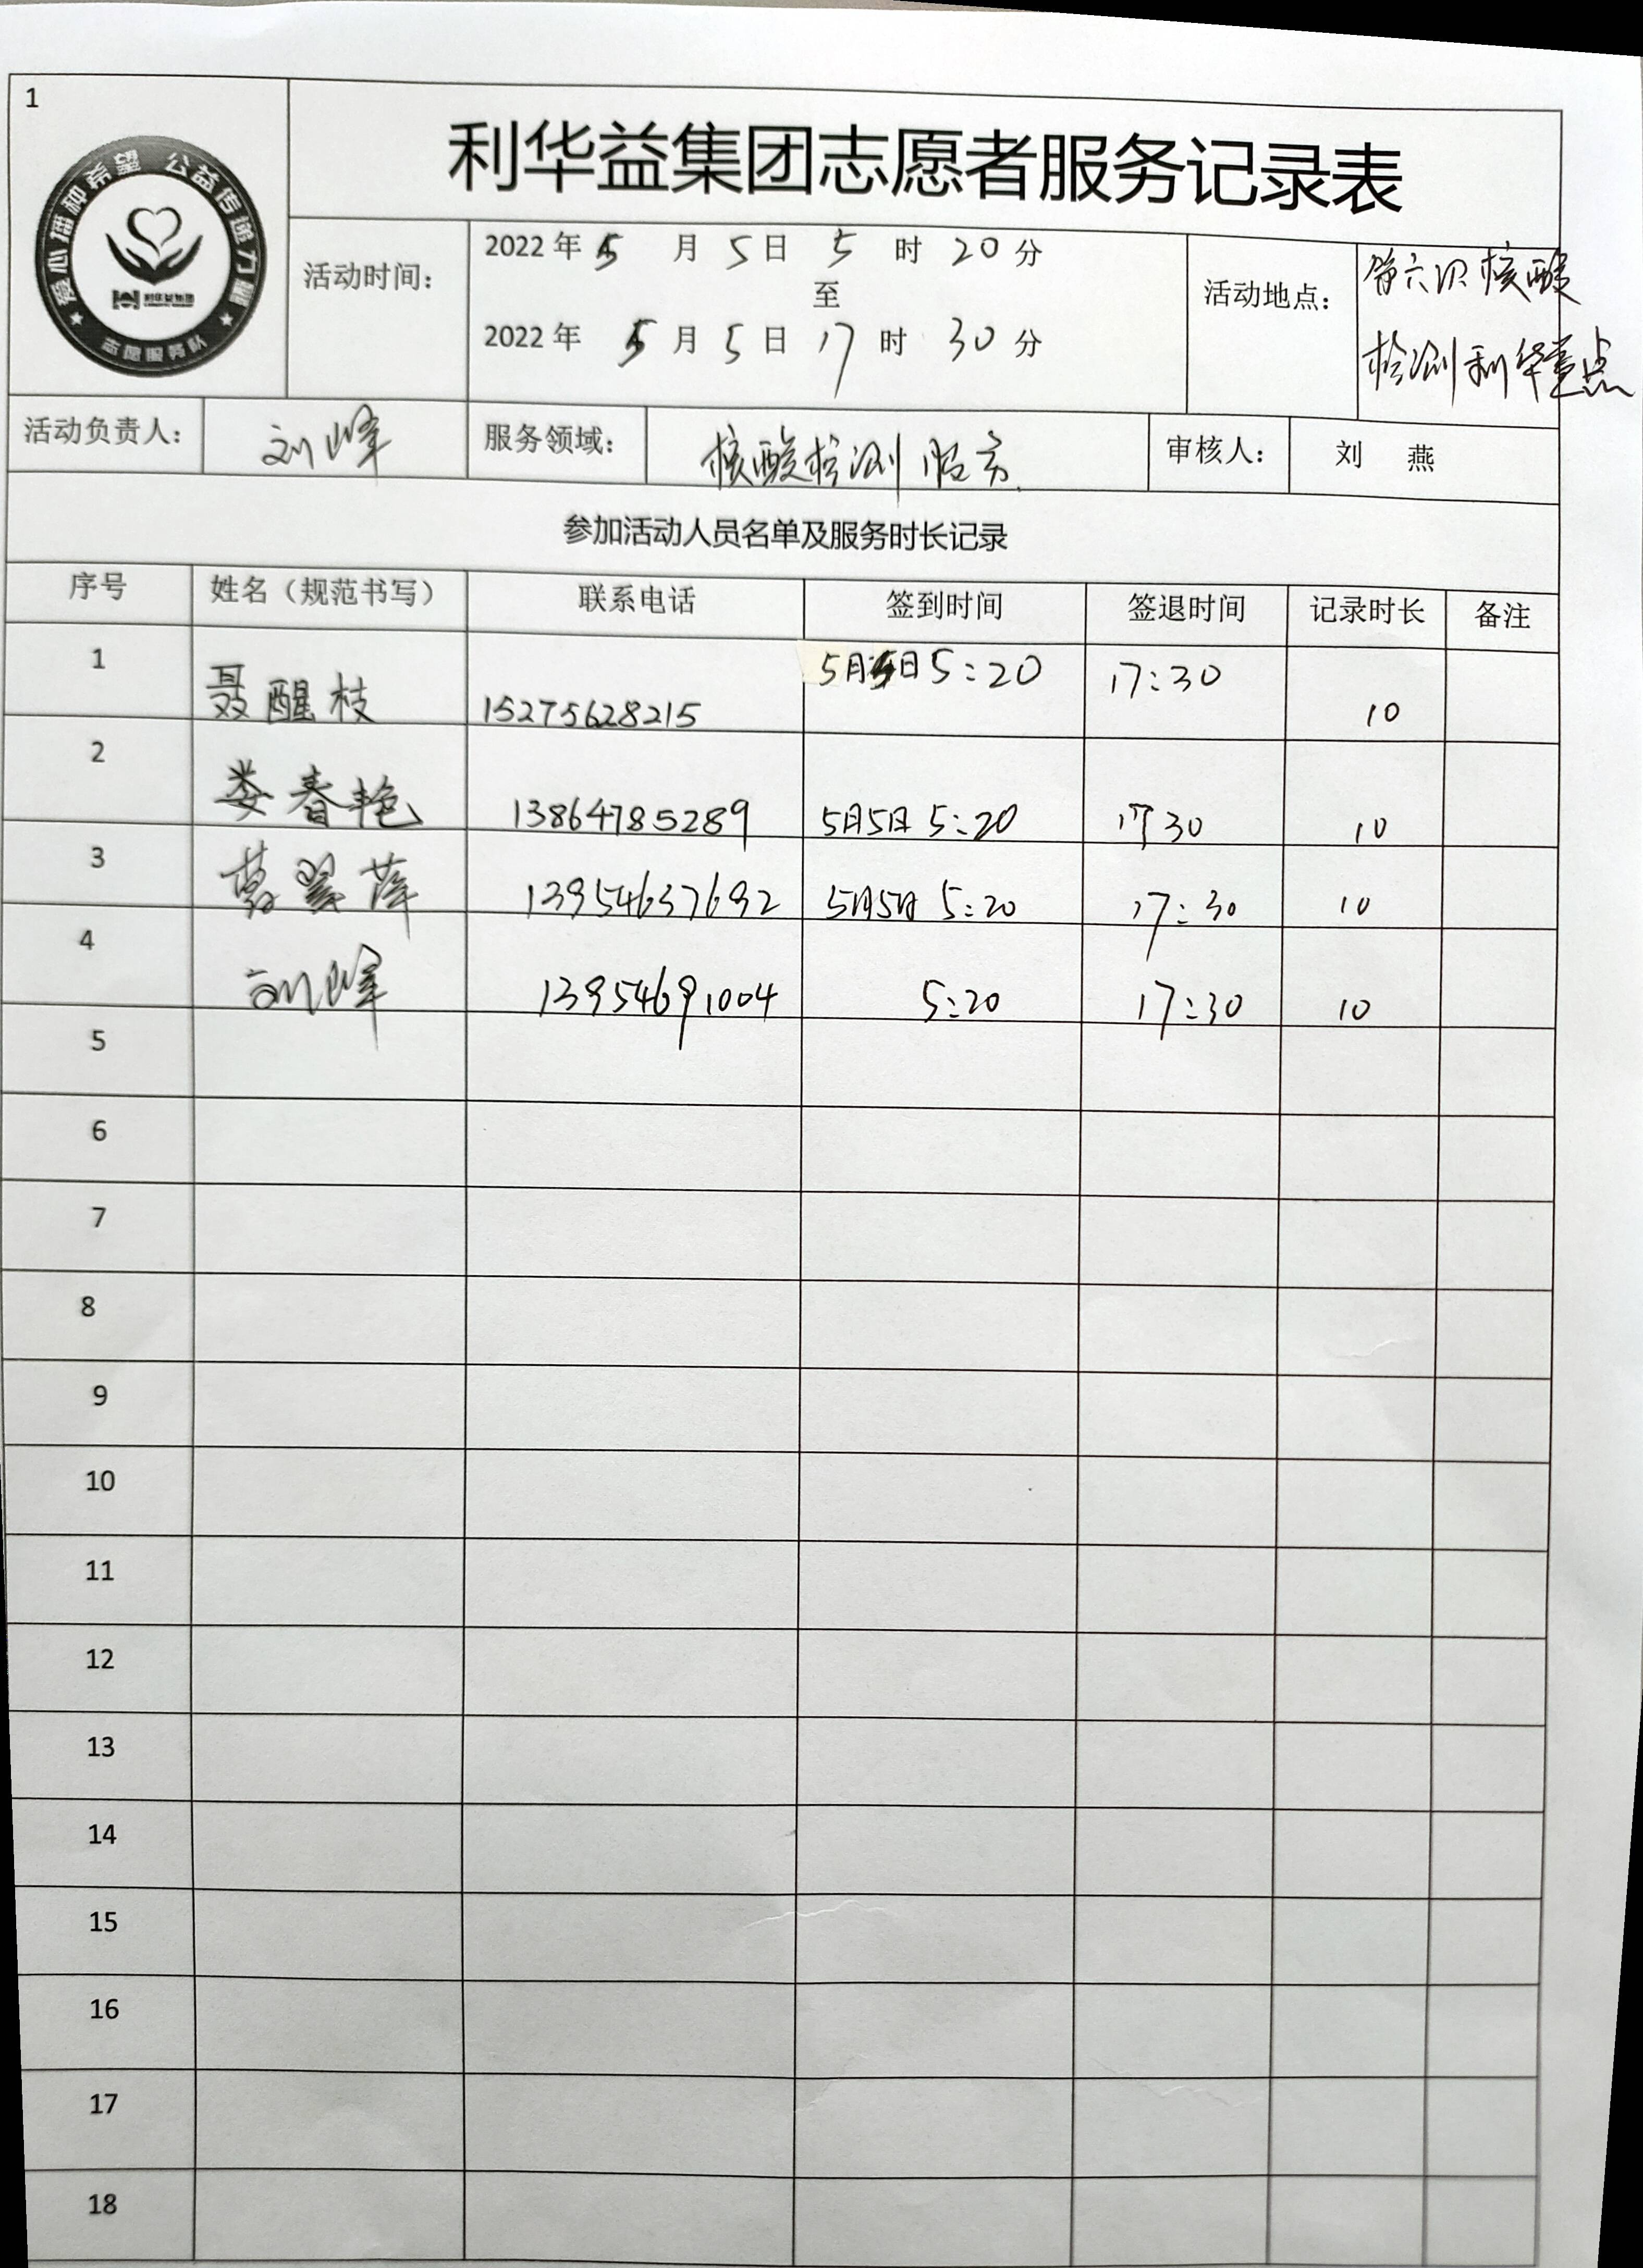 1
爱心播种希望 公益传递力量
利华益集团
志愿服务队
利华益集团志愿者服务记录表
活动时间：
2022 年 5 月 5 日 5 时 20 分
至
2022 年 5 月 5 日 17 时 30 分
活动地点：
第六次核酸
检测利华益点
活动负责人： 刘峰 服务领域： 核酸检测服务 审核人： 刘 燕
参加活动人员名单及服务时长记录
序号 姓名（规范书写） 联系电话 签到时间 签退时间 记录时长 备注
1 聂醒枝 15275628215 5月5日 5:20 17:30 10
2 娄春艳 13864785289 5月5日 5:20 17 30 10
3 翠萍 13954637692 5月5日 5:20 17:30 10
4 刘峰 13954691004 5:20 17:30 10
5
6
7
8
9
10
11
12
13
14
15
16
17
18